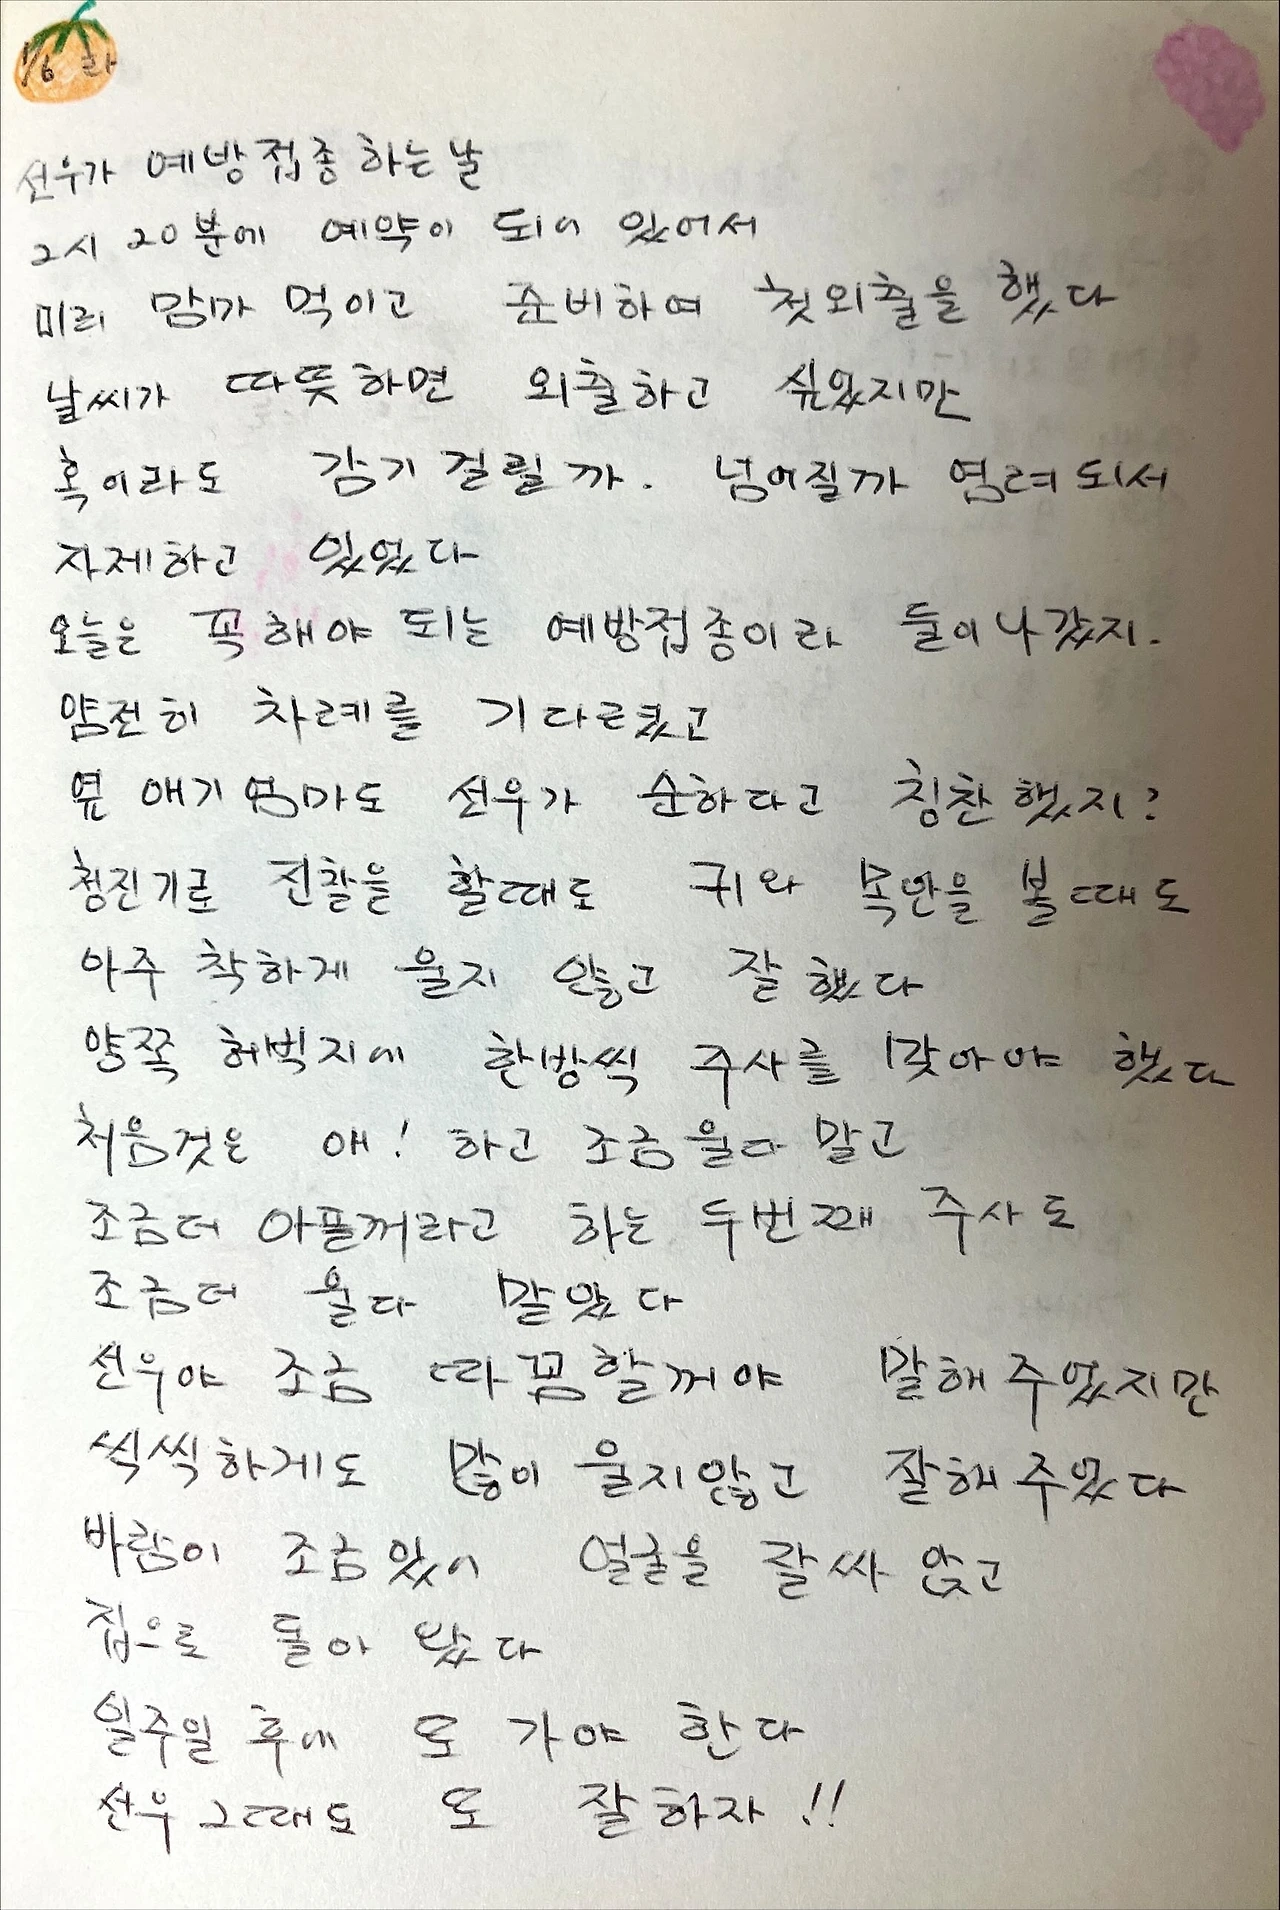 1/6 화
선우가 예방접종하는날
2시 20분에 예약이 되어 있어서
미리 맘마 먹이고 준비하여 첫외출을 했다
날씨가 따뜻하면 외출하고 싶었지만
혹이라도 감기걸릴까. 넘어질까 염려되서
자제하고 있었다
오늘은 꼭해야 되는 예방접종이라 둘이나갔지.
얌전히 차례를 기다렸고
옆 애기엄마도 선우가 순하다고 칭찬했지?
청진기로 진찰을 할때도 귀와 목안을 볼때도
아주 착하게 울지 않고 잘했다
양쪽 허벅지에 한방씩 주사를 맞아야 했다
처음것은 애! 하고 조금울다 말고
조금더 아플꺼라고 하는 두번째 주사도
조금더 울다 말았다
선우야 조금 따끔할꺼야 말해주었지만
씩씩하게도 많이 울지않고 잘해주었다
바람이 조금있어 얼굴을 잘싸 안고
집으로 돌아 왔다
일주일 후에 또 가야 한다
선우 그때도 또 잘하자!!